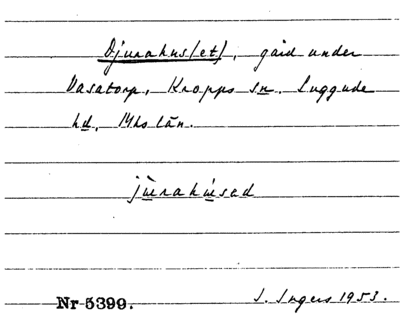 Djurahus(et), gård under
Vasatorp, Kropps sn. Luggude
hd, Mhs län.
jùrahúsad
Nr 5399.
I. Ingers 1953.